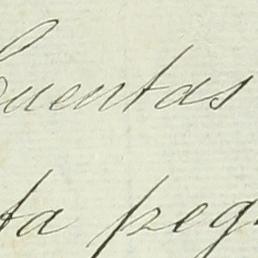 Cuentas
ta peg